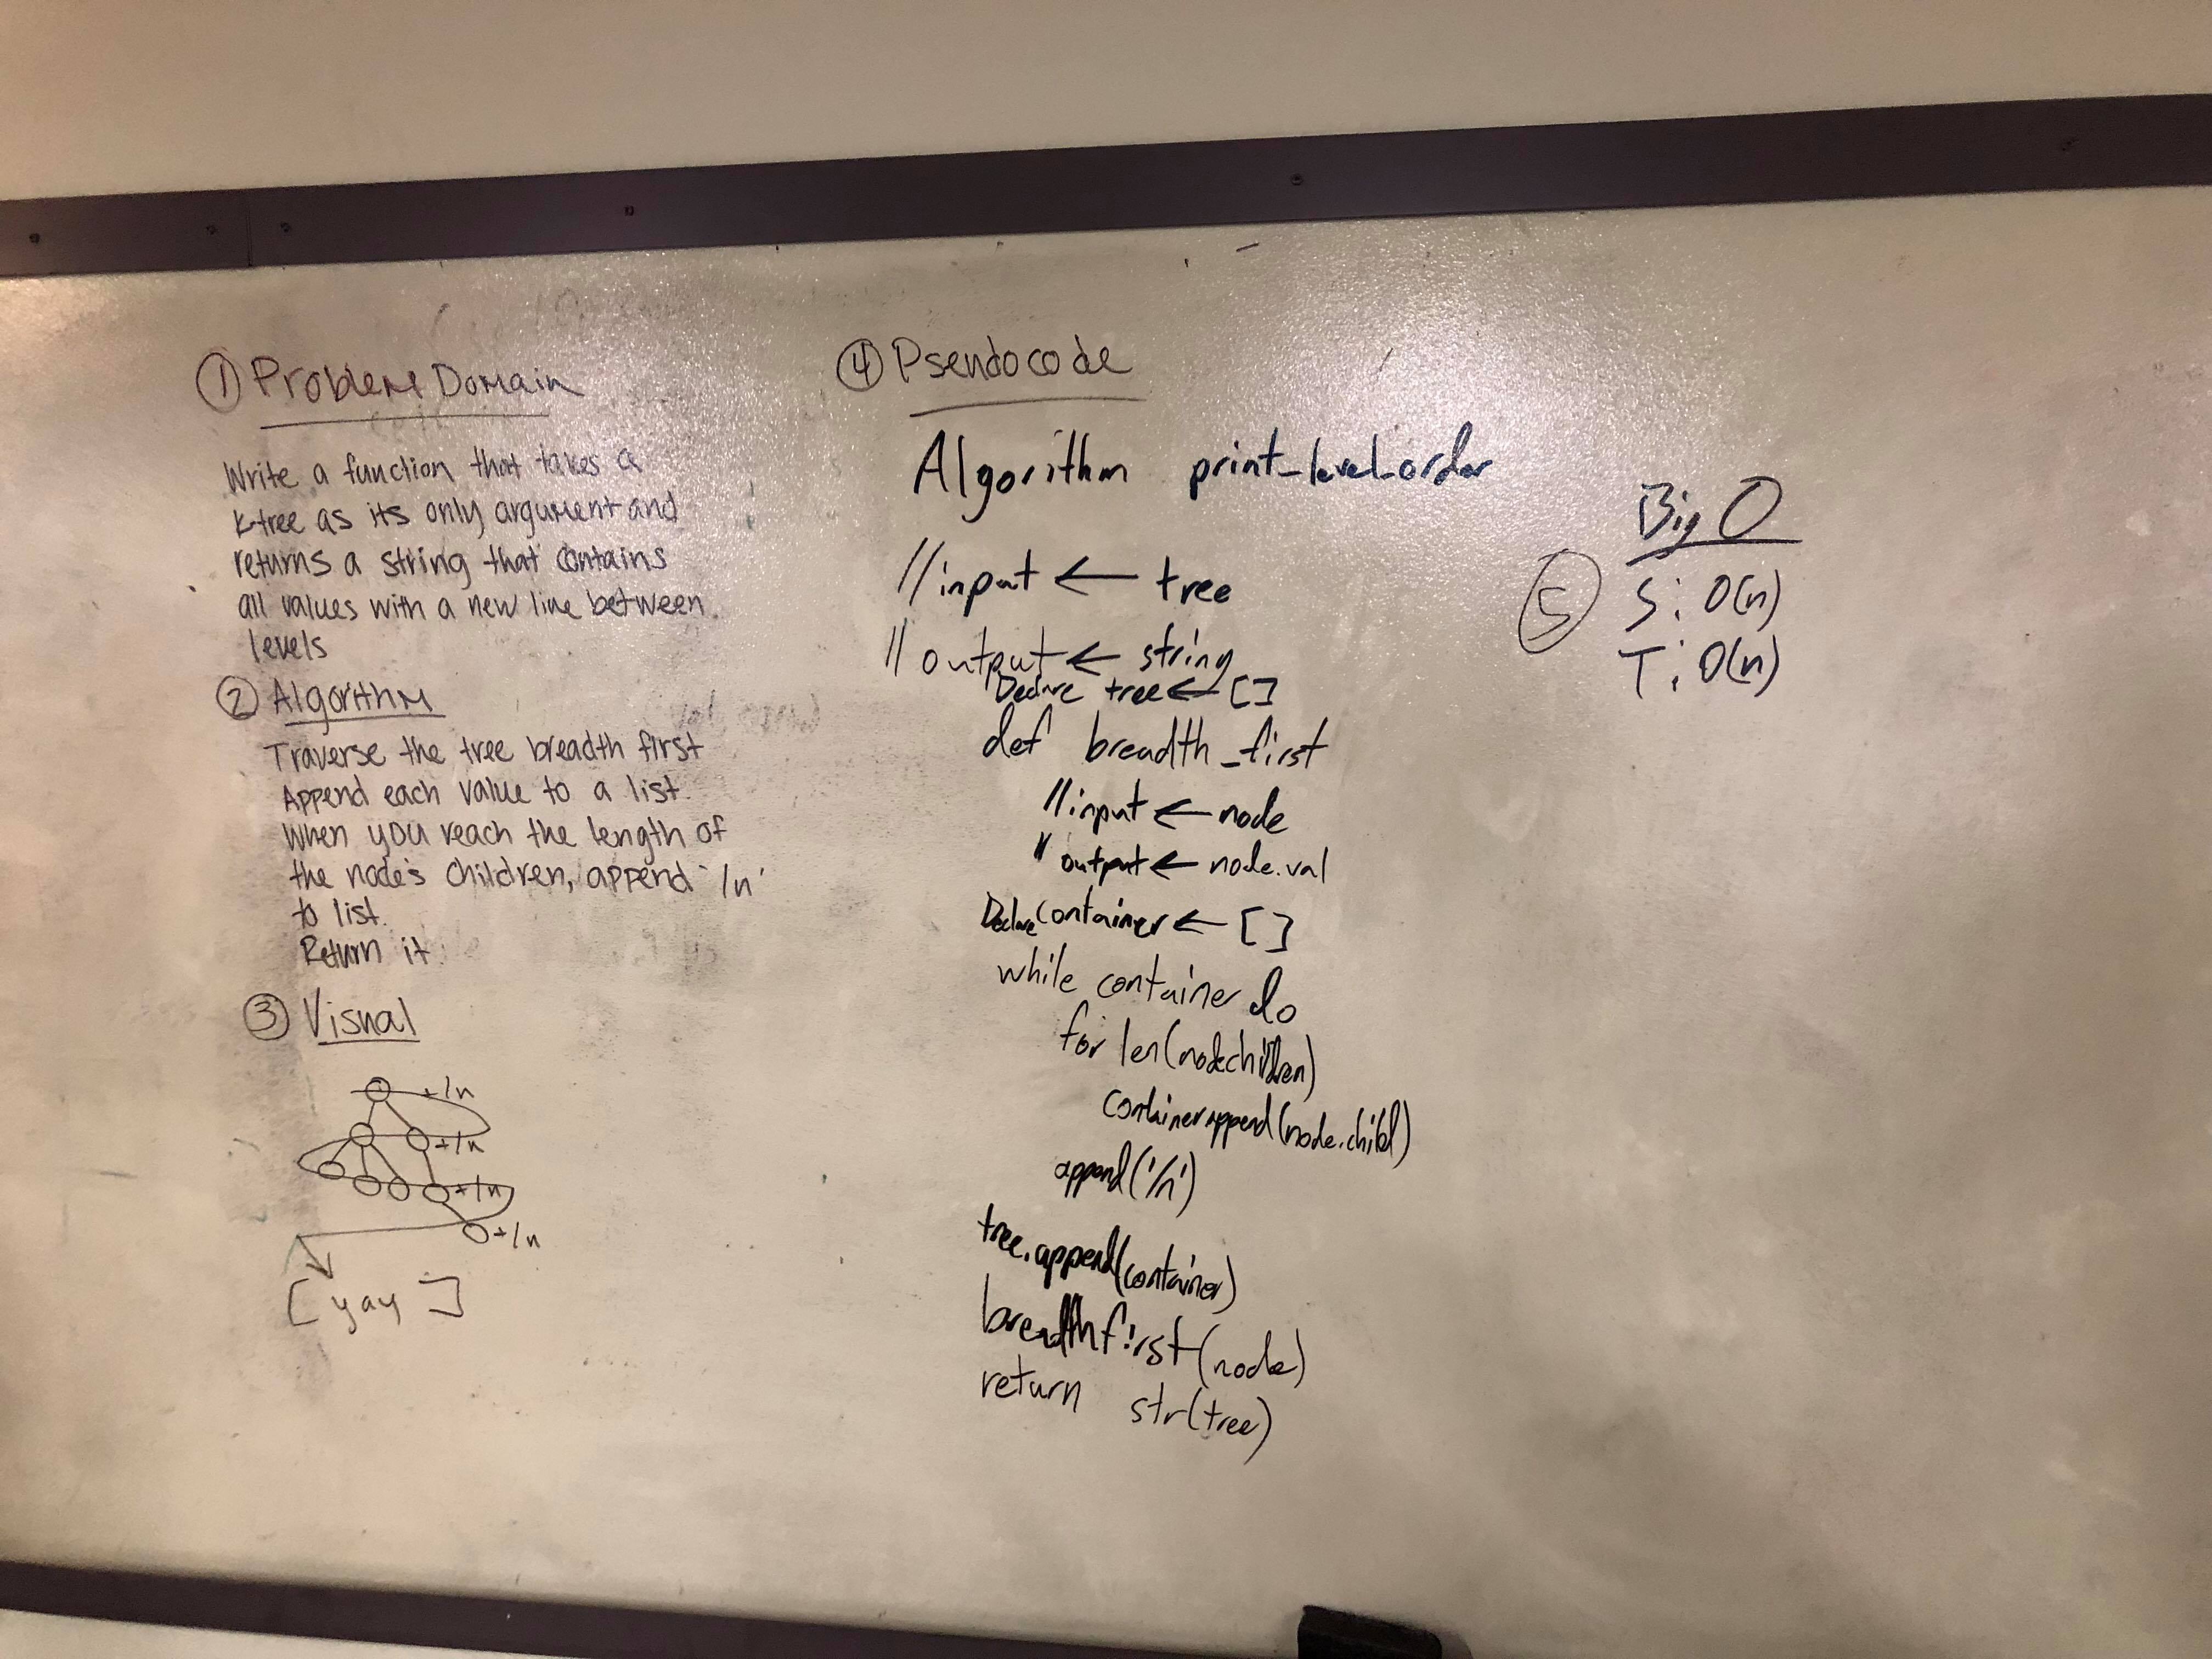 ① Problem Domain
Write a function that takes a
k-tree as its only argument and
returns a string that contains
all values with a new line between
levels
② Algorithm
Traverse the tree breadth first
Append each value to a list.
When you reach the length of
the node's children, append '/n'
to list.
Return it.
③ Visual
+/n
+/n
+/n
+/n
[yay]
④ Pseudocode
Algorithm print_level_order
//input ← tree
// output ← string
Declare tree ← []
def breadth_first
//input ← node
// output ← node.val
Declare container ← []
while container do
for len(node.children)
container.append(node.child)
append('/n')
tree.append(container)
breadthfirst(node)
return str(tree)
Big O
⑤ S: O(n)
T: O(n)